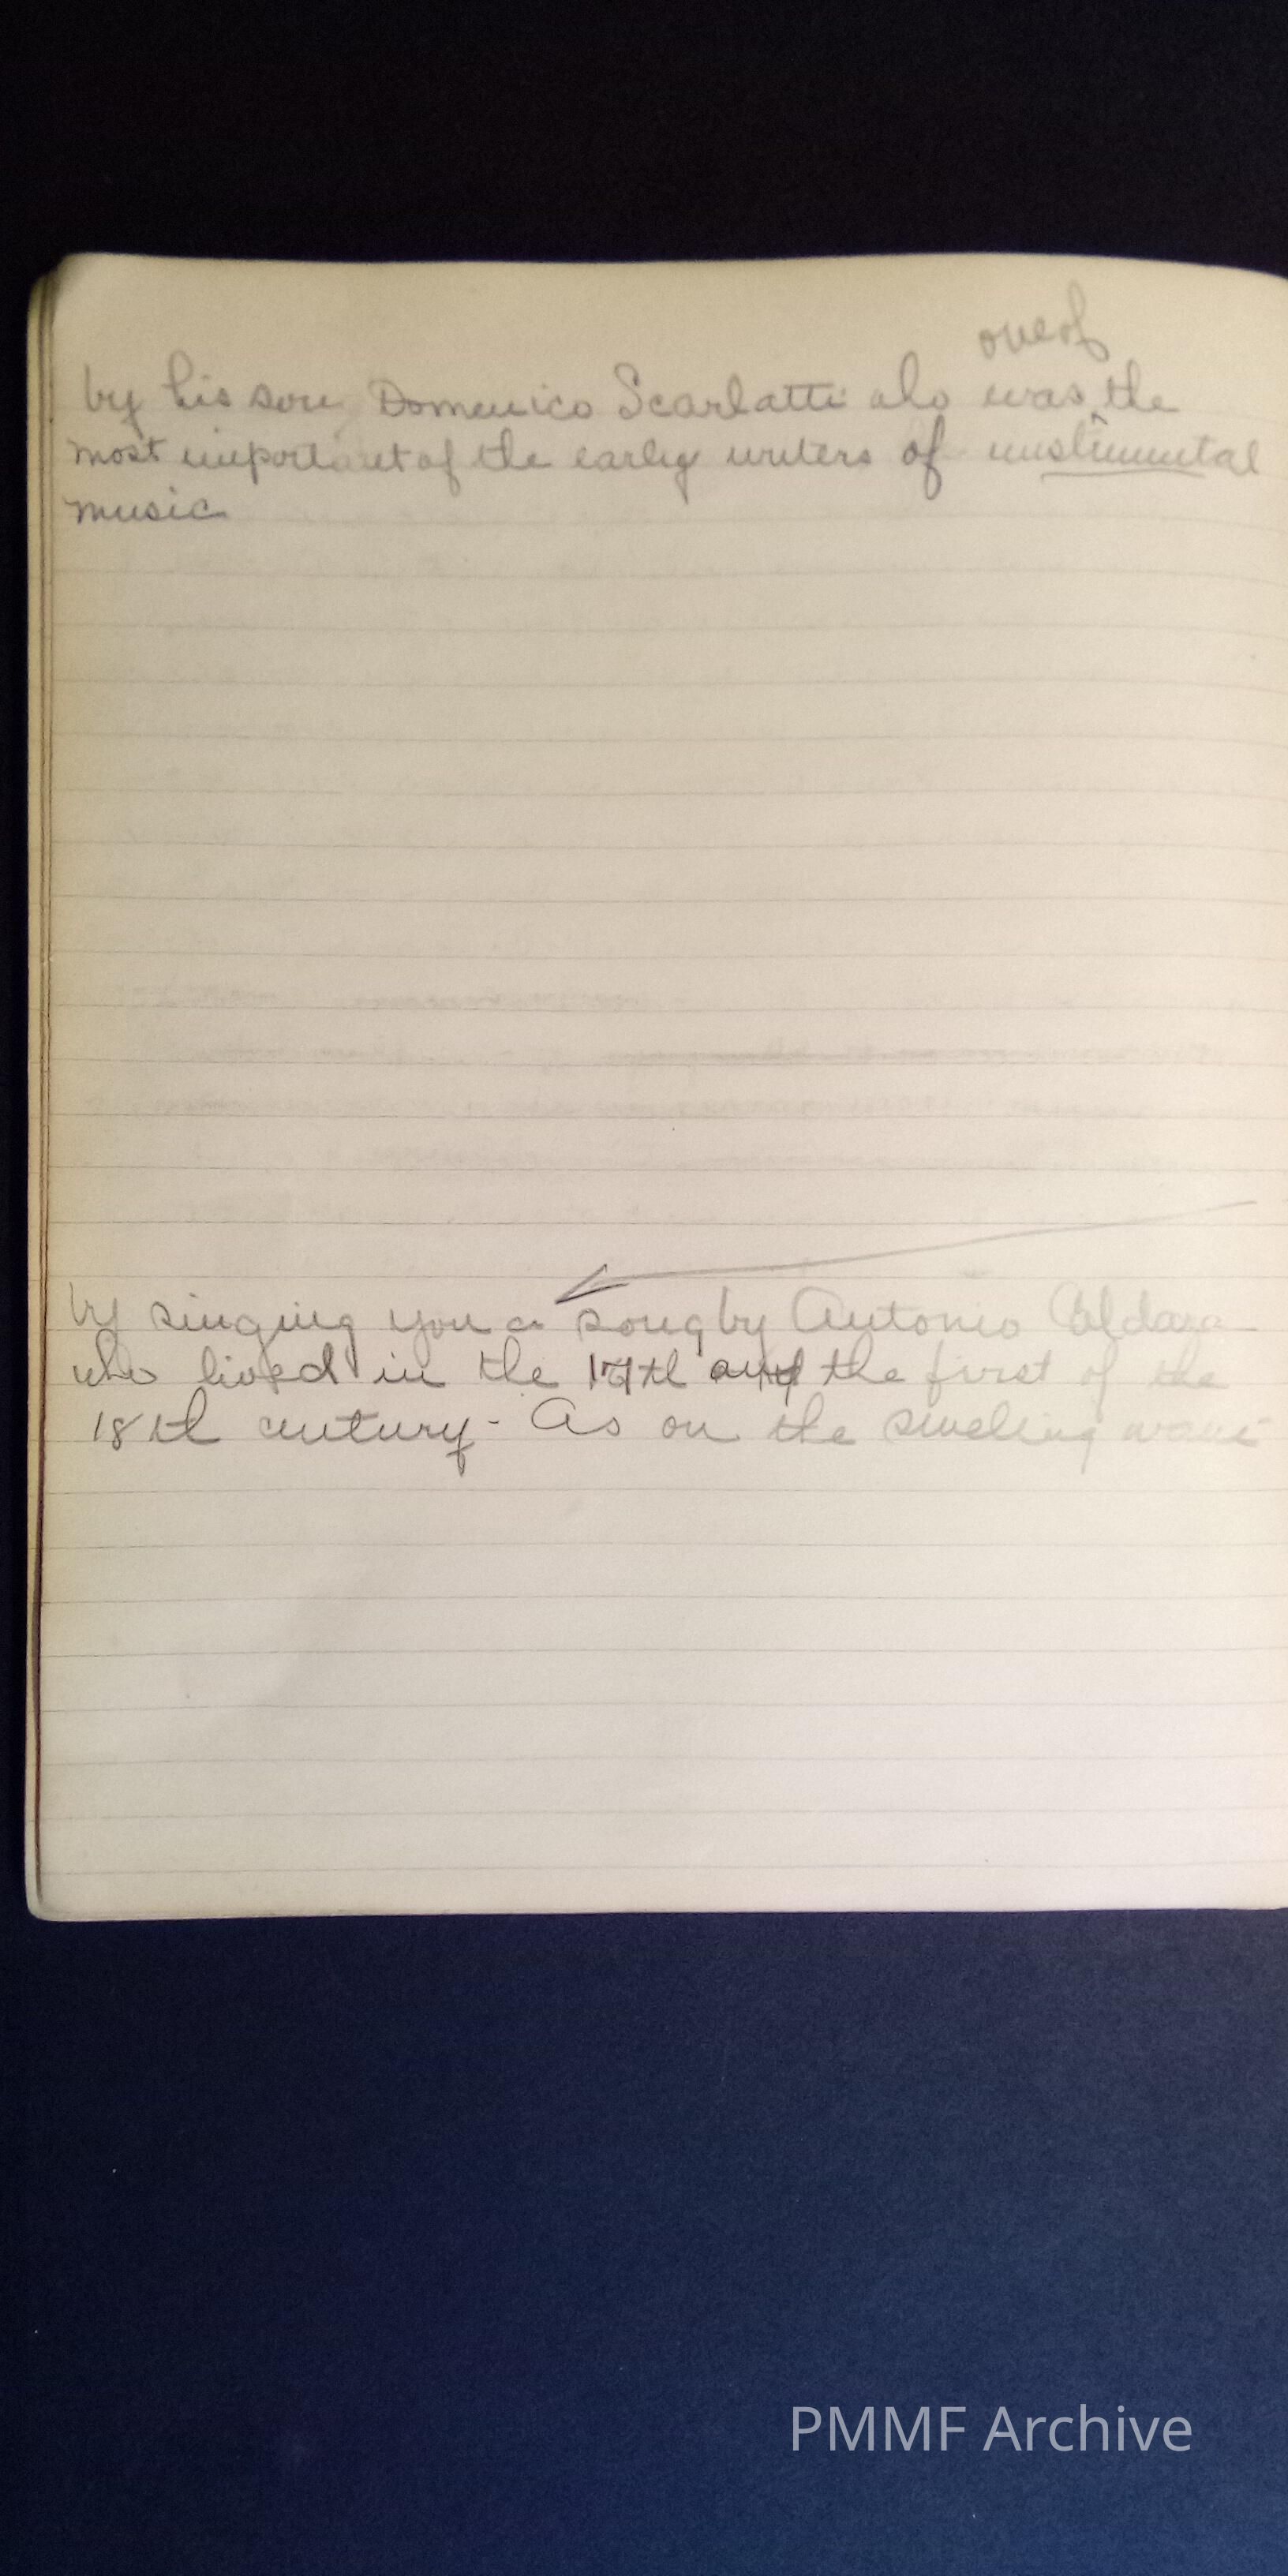 one of
by his son, Domenico Scarlatti who was ^ the
most important of the early writers of instrumental
music
by singing you a song by Antonio Caldara
who lived in the 17th and the first of the
18th century - As on the sweling wave
PMMF Archive